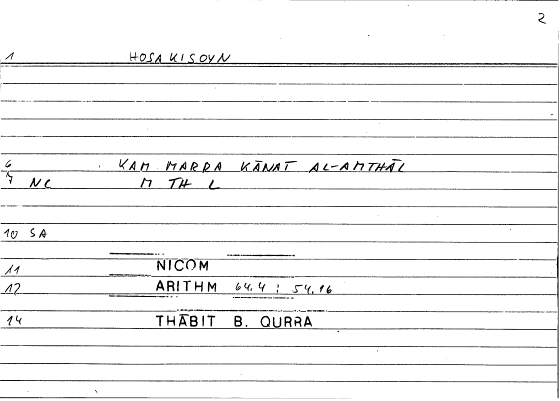 2
1 HOSAKISOYN
6 KAM MARRA KĀNAT AL-AMTHĀL
7 NC M TH L
10 SA
11 NICOM
12 ARITHM 64.4 : 54.16
14 THĀBIT B. QURRA